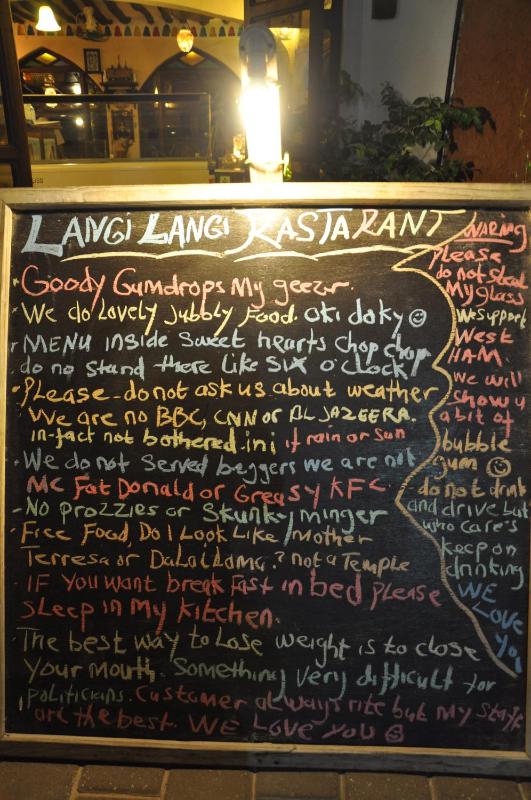 LANGi LANGi RASTARANT
Goody Gumdrops My geezer.
We do Lovely Jubbly Food. oki doky
MENU inside Sweet hearts chop chop
do no stand there Like SIX o'clock!
Please do not ask us about weather
We are no BBC, CNN or ALJAZEERA.
in-fact not bothered.ini if rain or Sun
We do not Served beggers we are not
MC Fat Donald or Greasy KFC
No prozzies or Skunky minger
Free Food, Do I Look Like /Mother
Terresa or DaLaiLama? not a Temple
IF You want break Fast in bed please
sLeep in My kitchen.
The best way to Lose weight is to close
your mouth. Something very difficult for
politicians. Customer always rite but my staff
are the best. WE Love you
WARiNG
Please
do not steal
My glass
We support
West
HAM
we will
show u
a bit of
bubble
gum
do not drink
and drive but
who care's
keep on
drinking
WE
LOVE
You